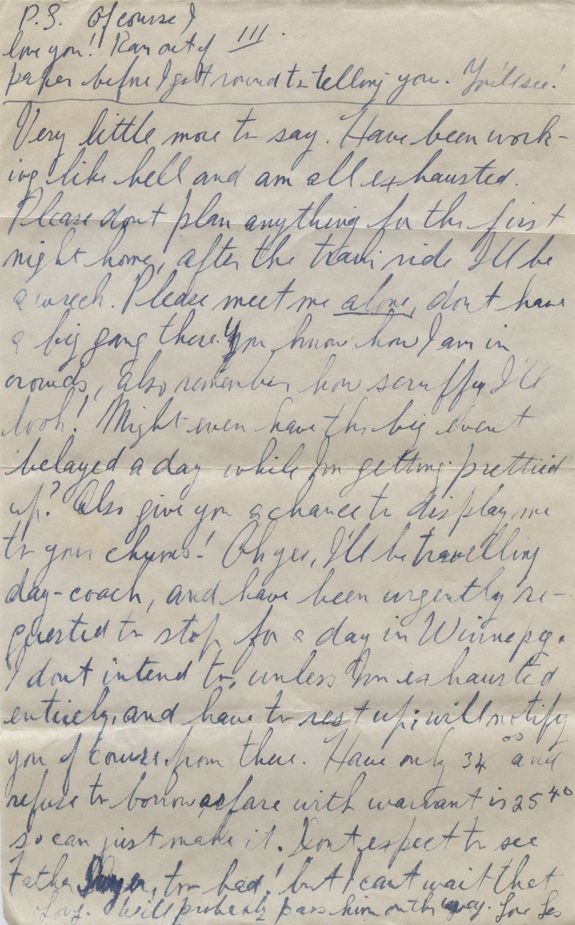 P.S. Of course I
love you!! Ran out of III.
paper before I got round to telling you. You'll see!
Very little more to say. Have been work-
ing like hell and am all exhausted.
Please dont plan anything for the first
night home, after the train ride I'll be
a wreck. Please meet me alone, dont have
a big gang there. You know how I am in
crowds, also remember how scruffy I'll
look! Might even have the big event
belayed a day while I'm getting prettied
up? Also give you a chance to display me
to your chums! Oh yes, I'll be travelling
day-coach, and have been urgently re-
quested to stop for a day in Winnepeg.
I dont intend to, unless I'm exhausted
entirely, and have to rest up; will notify
you of course from there. Have only 34 00 and
refuse to borrow as fare with warrant is 25 40
so can just make it. Dont expect to see
Father, too bad! but I cant wait that
long. I will probably pass him on the way. Love